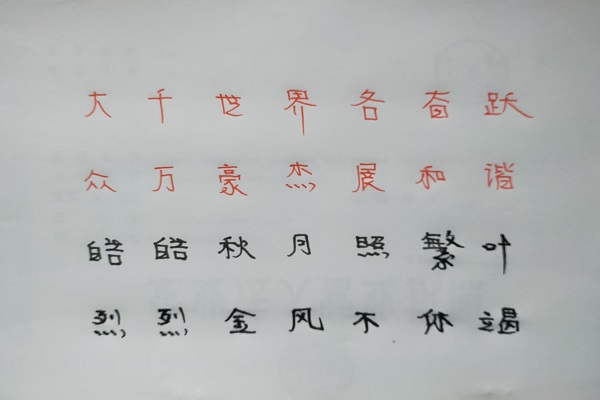 大千世界各奋跃
众万豪杰展和谐
皓皓秋月照繁叶
烈烈金风不休竭